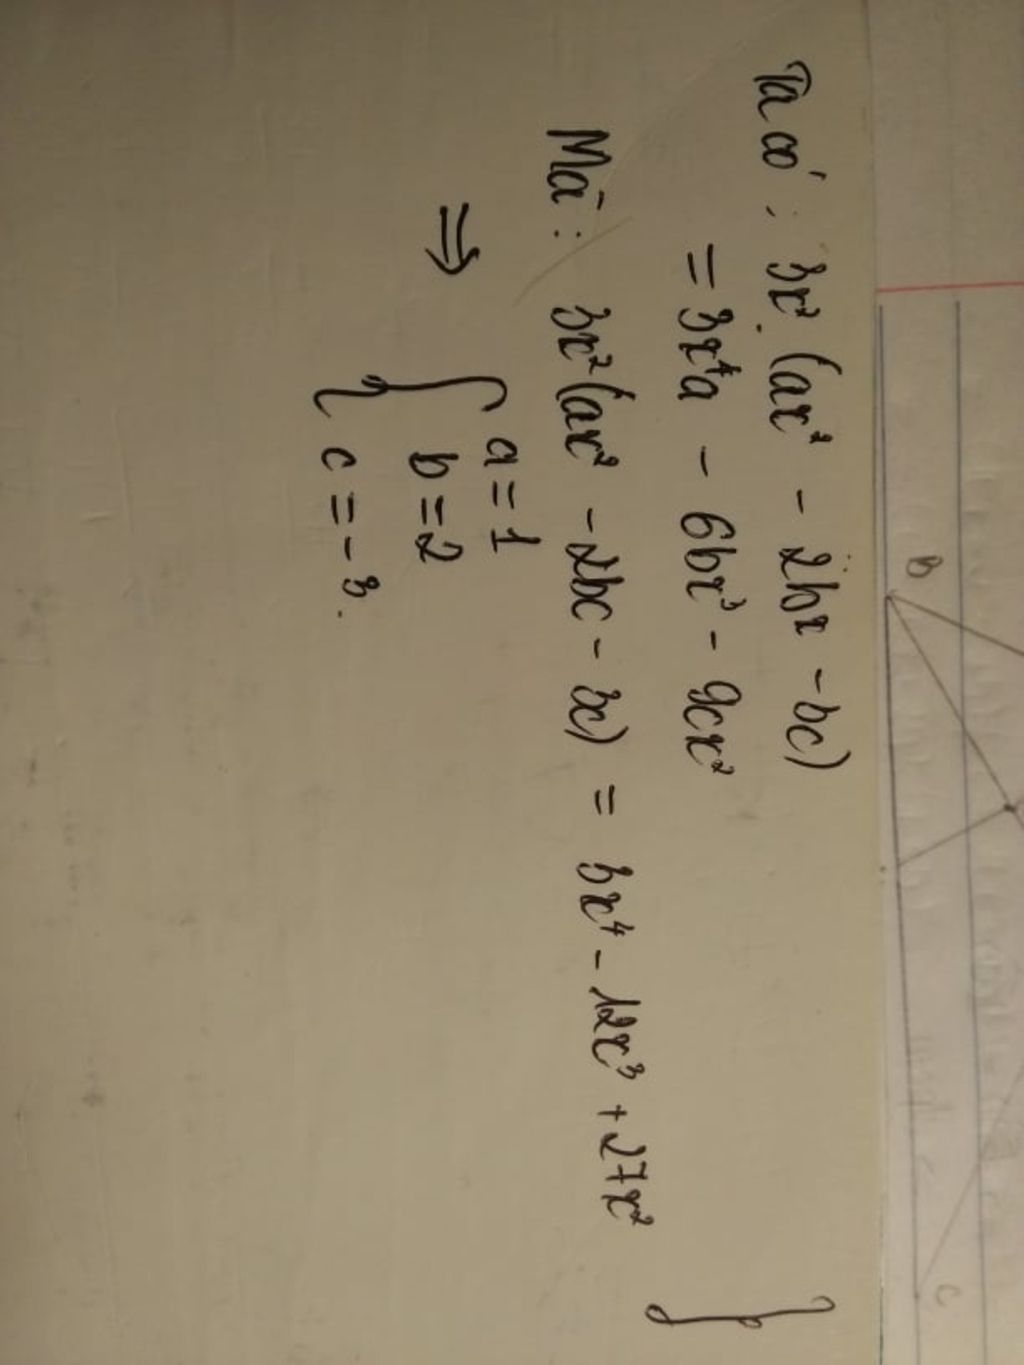 Ta có: 3x² . (ax² - 2bx - 3c)
= 3x⁴a - 6bx³ - 9cx²
Mà: 3x² (ax² - 2bc - 3c) = 3x⁴ - 12x³ + 27x²
⇒ { a = 1
b = 2
c = -3.
B
C